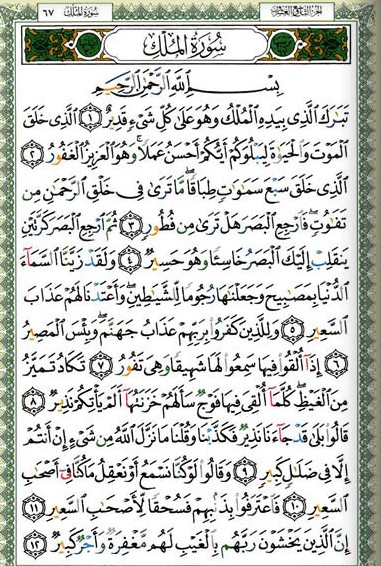 سُورَةُ المُلْكِ ٦٧ الجزء التاسع والعشرون
سُورَةُ المُلْكِ
بِسْمِ اللَّهِ الرَّحْمَٰنِ الرَّحِيمِ
تَبَارَكَ الَّذِي بِيَدِهِ الْمُلْكُ وَهُوَ عَلَىٰ كُلِّ شَيْءٍ قَدِيرٌ ﴿١﴾ الَّذِي خَلَقَ
الْمَوْتَ وَالْحَيَاةَ لِيَبْلُوَكُمْ أَيُّكُمْ أَحْسَنُ عَمَلًا ۚ وَهُوَ الْعَزِيزُ الْغَفُورُ ﴿٢﴾
الَّذِي خَلَقَ سَبْعَ سَمَاوَاتٍ طِبَاقًا ۖ مَّا تَرَىٰ فِي خَلْقِ الرَّحْمَٰنِ مِن
تَفَاوُتٍ ۖ فَارْجِعِ الْبَصَرَ هَلْ تَرَىٰ مِن فُطُورٍ ﴿٣﴾ ثُمَّ ارْجِعِ الْبَصَرَ كَرَّتَيْنِ
يَنقَلِبْ إِلَيْكَ الْبَصَرُ خَاسِئًا وَهُوَ حَسِيرٌ ﴿٤﴾ وَلَقَدْ زَيَّنَّا السَّمَاءَ
الدُّنْيَا بِمَصَابِيحَ وَجَعَلْنَاهَا رُجُومًا لِّلشَّيَاطِينِ ۖ وَأَعْتَدْنَا لَهُمْ عَذَابَ
السَّعِيرِ ﴿٥﴾ وَلِلَّذِينَ كَفَرُوا بِرَبِّهِمْ عَذَابُ جَهَنَّمَ ۖ وَبِئْسَ الْمَصِيرُ
﴿٦﴾ إِذَا أُلْقُوا فِيهَا سَمِعُوا لَهَا شَهِيقًا وَهِيَ تَفُورُ ﴿٧﴾ تَكَادُ تَمَيَّزُ
مِنَ الْغَيْظِ ۖ كُلَّمَا أُلْقِيَ فِيهَا فَوْجٌ سَأَلَهُمْ خَزَنَتُهَا أَلَمْ يَأْتِكُمْ نَذِيرٌ ﴿٨﴾
قَالُوا بَلَىٰ قَدْ جَاءَنَا نَذِيرٌ فَكَذَّبْنَا وَقُلْنَا مَا نَزَّلَ اللَّهُ مِن شَيْءٍ إِنْ أَنتُمْ
إِلَّا فِي ضَلَالٍ كَبِيرٍ ﴿٩﴾ وَقَالُوا لَوْ كُنَّا نَسْمَعُ أَوْ نَعْقِلُ مَا كُنَّا فِي أَصْحَابِ
السَّعِيرِ ﴿١٠﴾ فَاعْتَرَفُوا بِذَنبِهِمْ فَسُحْقًا لِّأَصْحَابِ السَّعِيرِ ﴿١١﴾
إِنَّ الَّذِينَ يَخْشَوْنَ رَبَّهُم بِالْغَيْبِ لَهُم مَّغْفِرَةٌ وَأَجْرٌ كَبِيرٌ ﴿١٢﴾